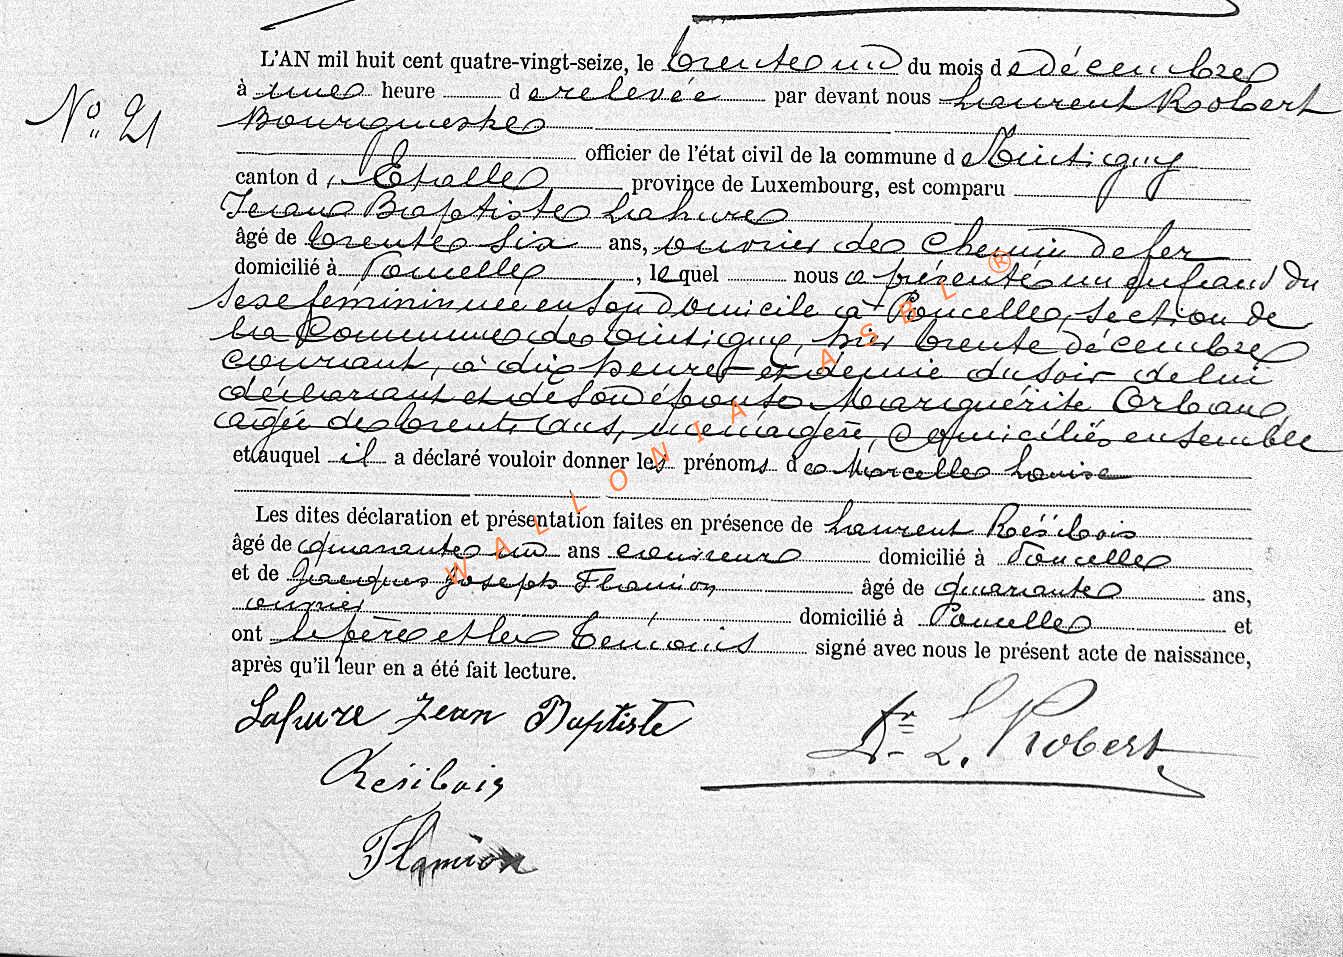 L'AN mil huit cent quatre-vingt-seize, le trente un du mois de décembre
No 21
à une heure de relevée par devant nous Laurent Robert
Bourgmestre
officier de l'état civil de la commune de Tintigny
canton d'Etalle province de Luxembourg, est comparu
Jean Baptiste Lahure
âgé de trente six ans, ouvrier de chemin de fer
domicilié à Poncelle, lequel nous a présenté un enfant du
sexe féminin née en son domicile à Poncelle, section de
la Commune de Tintigny, hier trente décembre
courant, à dix heures et demie du soir de lui
déclarant et de son épouse Marguérite Orban,
agée de trente ans, ménagère, domiciliés ensemble
et auquel il a déclaré vouloir donner les prénoms de Marcelle Louise
Les dites déclaration et présentation faites en présence de Laurent Résibois
âgé de quarante un ans domicilié à Poncelle
et de Jacques Joseph Flamion âgé de quarante ans,
ouvrier domicilié à Poncelle et
ont le père et les témoins signé avec nous le présent acte de naissance,
après qu'il leur en a été fait lecture.
Lahure Jean Baptiste
Dr L. Robert
Résibois
Flamion
WALLONIA ASBL ®